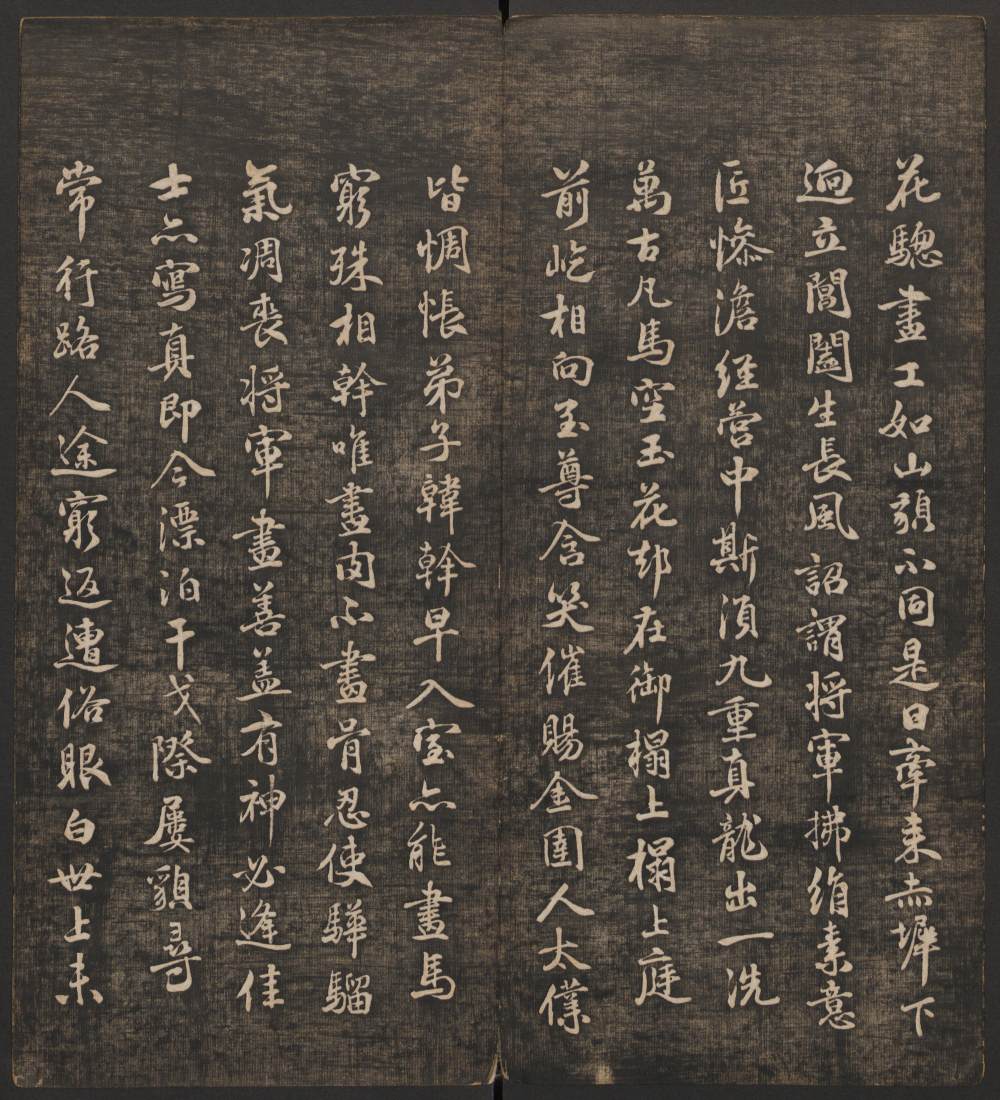 花驄畫工如山貌不同是日牽来赤墀下
迥立閶闔生長風詔謂将軍拂絹素意
匠慘澹経營中斯湏九重真龍出一洗
萬古凡馬空玉花却在御榻上榻上庭
前屹相向至尊含笑催賜金圉人太僕
皆惆悵弟子韓幹早入室亦能畫馬
窮殊相幹唯畫肉不畫骨忍使驊騮
氣凋喪将軍畫善盖有神必逢佳
士亦寫真即今漂泊干戈際屢貌尋
常行路人途窮返遭俗眼白世上未